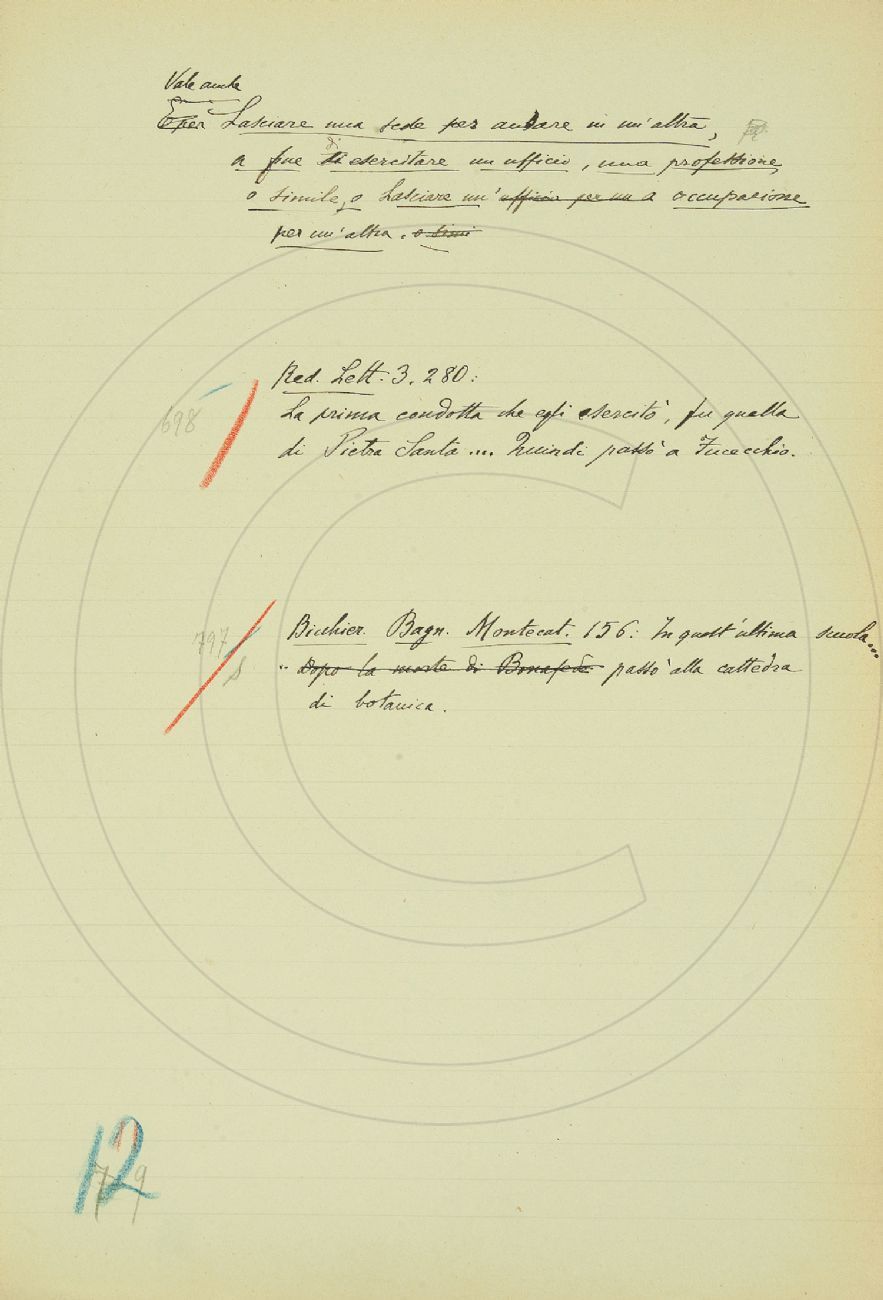 Vale anche
E per Lasciare una sede per andare in un'altra,
a fine di esercitare un ufficio, una professione,
o simile, o Lasciare un' ufficio per un a occupazione
per un'altra. o simi
Red. Lett. 3. 280:
La prima condotta che egli esercitò, fu quella
698
di Pietra Santa ... Quindi passò a Fucecchio.
Bicchier. Bagn. Montecat. 156: In quest'ultima scuola...
797
.. Dopo la morte di Bonafede passò alla cattedra
di botanica.
12
7 9